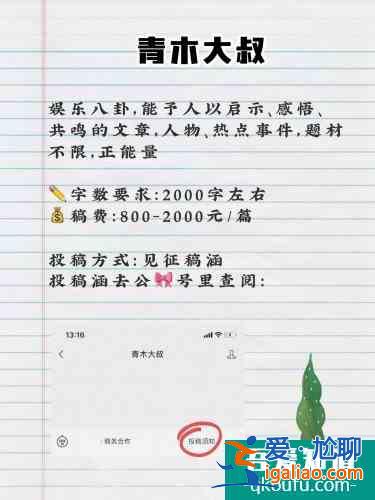 青木大叔
娱乐八卦,能予人以启示、感悟、
共鸣的文章,人物、热点事件,题材
不限,正能量
字数要求:2000字左右
稿费:800-2000元/篇
投稿方式:见征稿涵
投稿涵去公号里查阅:
13:16
青木大叔
商务合作
投稿须知
爱·尬聊
haoyunlai8.com
qk5ufu.com